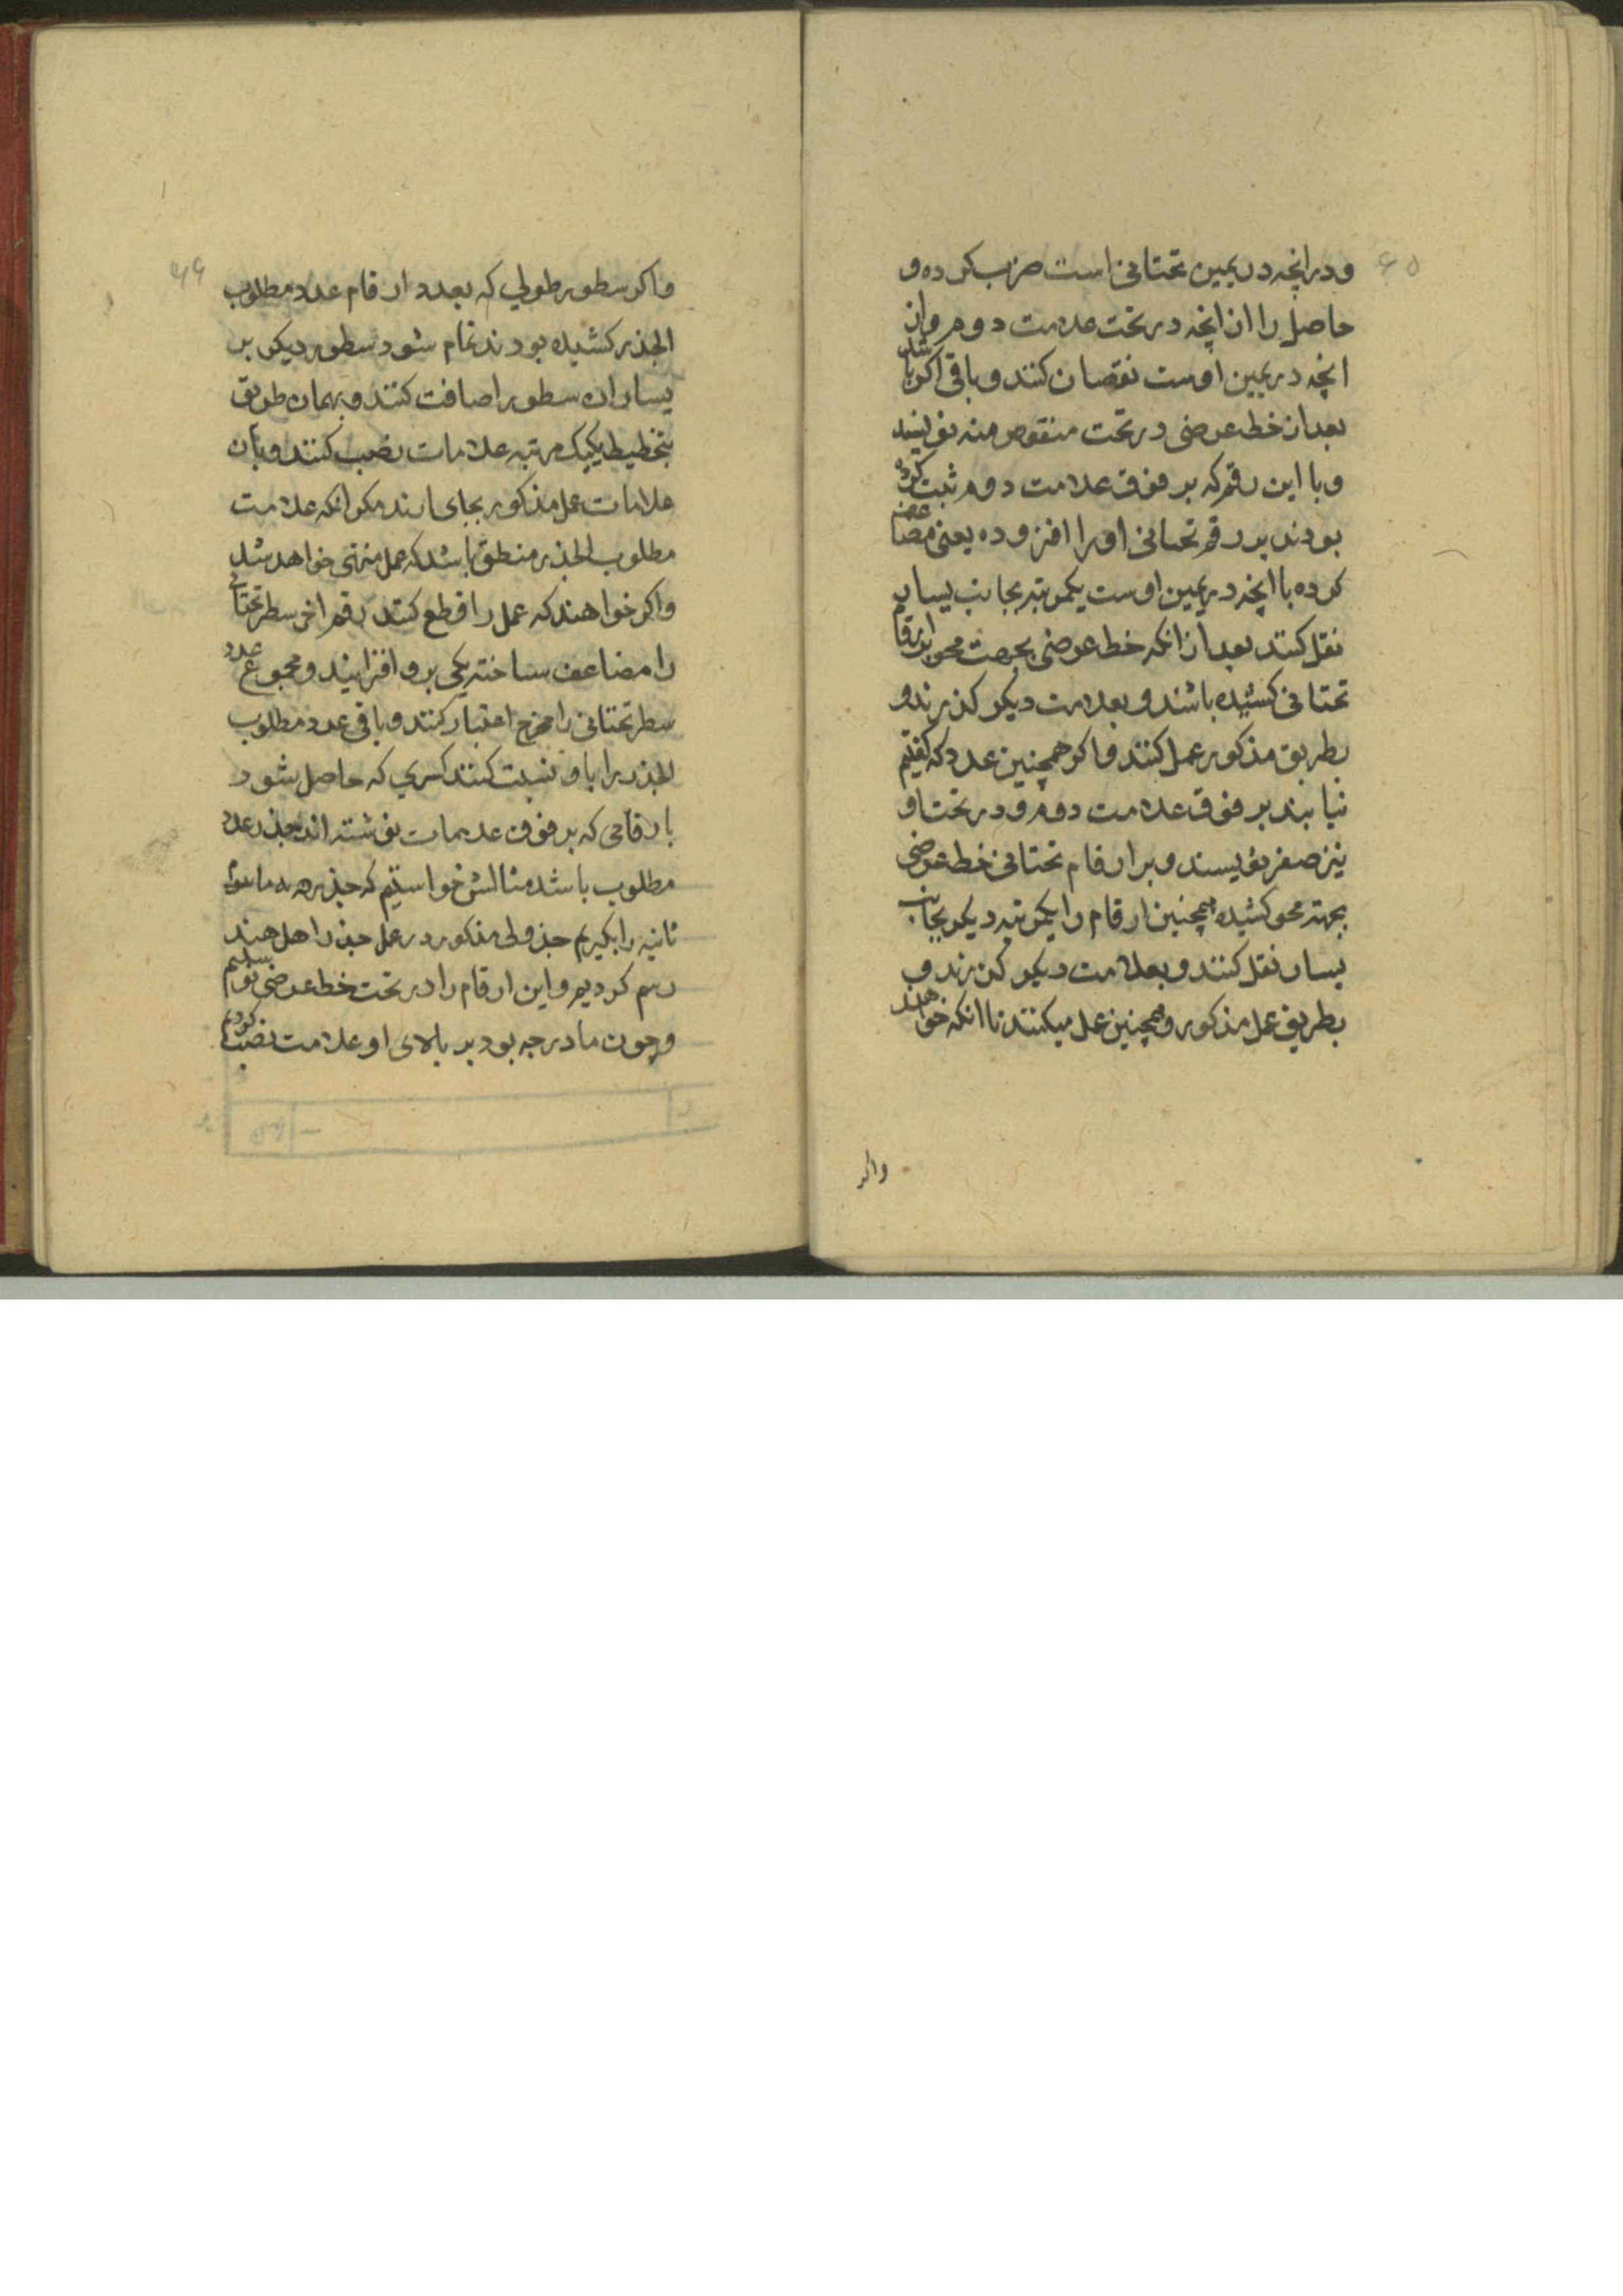 ۶۵
و در انچه در یمین تحتانی است ضرب کرده و
حاصل را از انچه در تحت علامت دوم و از
انچه در یمین اوست نقصان کنند و باقی اکر باشد
بعد از خط عرضی در تحت منقوص منه نویسند
و با این رقم که بر فوق علامت دوم ثبت کرده
بودند بر رقم تحتانی او را افزوده یعنی مضاعف
کرده با انچه در یمین اوست یکمرتبه بجانب یسار
نقل کنند بعد از انکه خط عرضی بجهت محو ارقام
تحتانی کشیده باشند و بعلامت دیکر کذرند و
بطریق مذکور عمل کنند و اکر همچنین عدد که کفتیم
نیابند بر فوق علامت دوم و در تحت او
نیز صفر نویسند و بر ارقام تحتانی خط عرضی
بجهته محو کشیده همچنین ارقام را یکمرتبه دیکر بجانب
یسار نقل کنند و بعلامت دیکر کذرند و
بطریق عمل مذکور و همچنین عمل میکنند تا انکه خواهند
واکر
۶۶
و اکر سطور طولی که بعدد ارقام عدد مطلوب
الجذر کشیده بودند تمام شود سطور دیکر بر
یسار ان سطور اضافت کنند و بهمان طریق
بتخطیط یکیک مرتبه علامات نصب کنند و بان
علامات عمل مذکور بجای ارند مکر انکه علامت
مطلوب الجذر منطق باشد که عمل منتهی خواهد شد
و اکر خواهند که عمل را قطع کنند رقم اخر سطر تحتانی
را مضاعف ساخته یکی برو افزایند و مجموع عدد
سطر تحتانی را مخرج اعتبار کنند و باقی عدد مطلوب
الجذر را باو نسبت کنند کسری که حاصل شود
با رقامی که بر فوق علامات نوشته اند جذر عدد
مطلوب باشد مثالش خواستیم که جذر
ثانیه را بکیریم جدولی مذکور در عمل جذر اهل هند
رسم کردیم و این ارقام را در تحت خط عرضی نوشتیم
و چون ما درجه بود بر بالای او علامت نصب کردیم